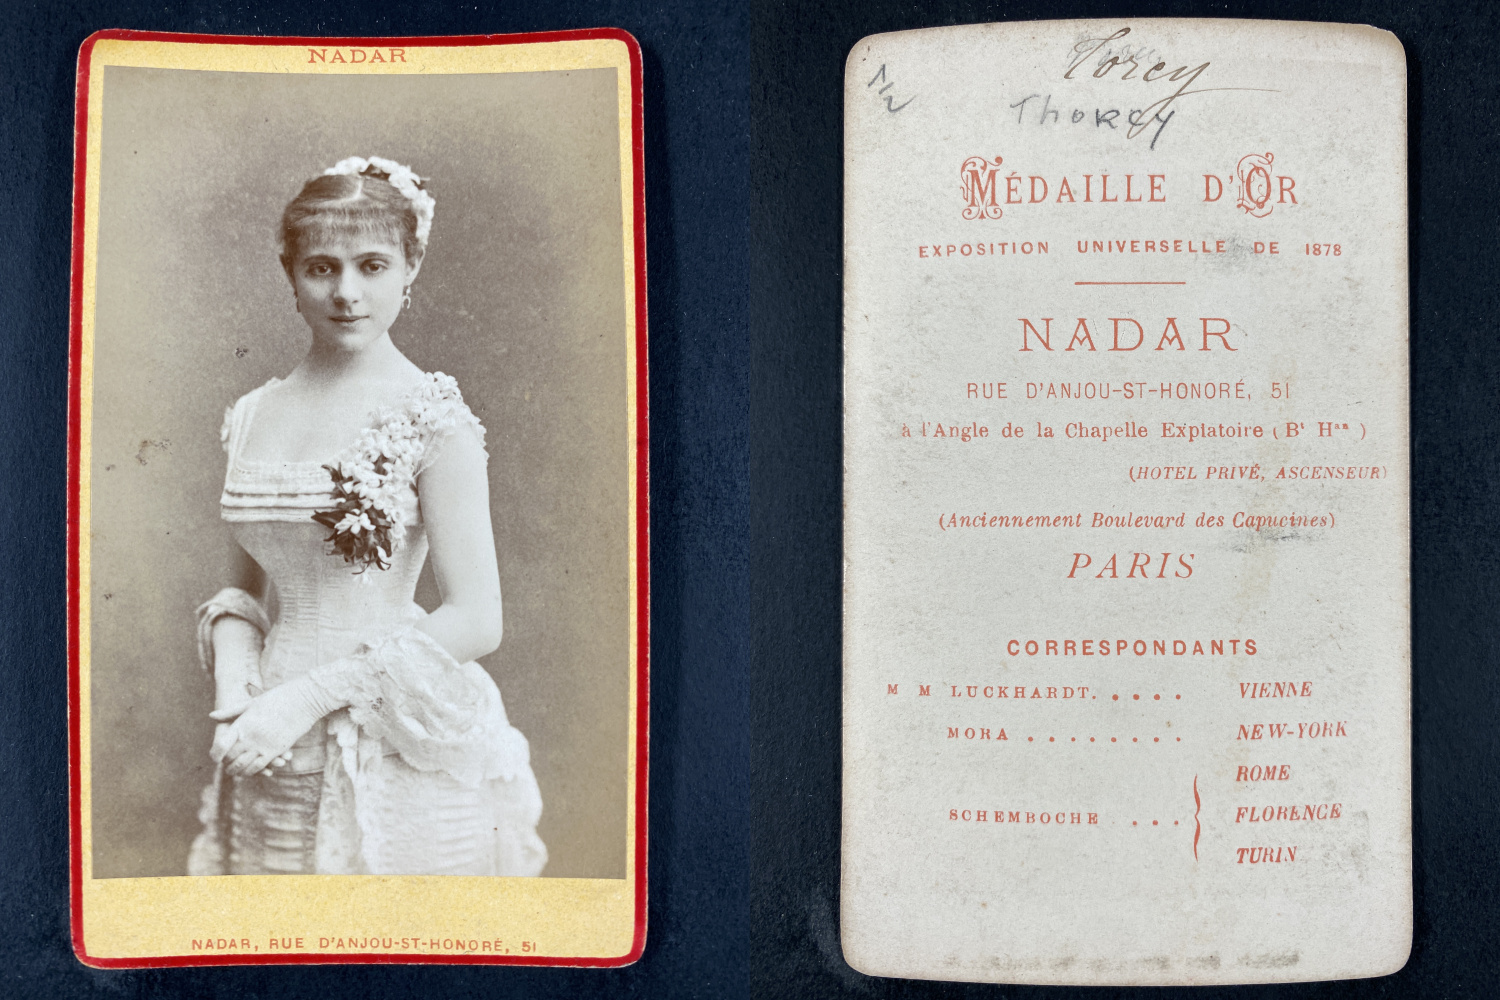 NADAR
NADAR, RUE D'ANJOU-ST-HONORÉ, 51
1/2
Torcy
Thorcy
MÉDAILLE D'OR
EXPOSITION UNIVERSELLE DE 1878
NADAR
RUE D'ANJOU-ST-HONORÉ, 51
à l'Angle de la Chapelle Expiatoire (Bt Han)
(HOTEL PRIVÉ, ASCENSEUR)
(Anciennement Boulevard des Capucines)
PARIS
CORRESPONDANTS
M M LUCKHARDT. . . . . VIENNE
MORA . . . . . . . . NEW-YORK
ROME
SCHEMBOCHE . . . FLORENCE
TURIN